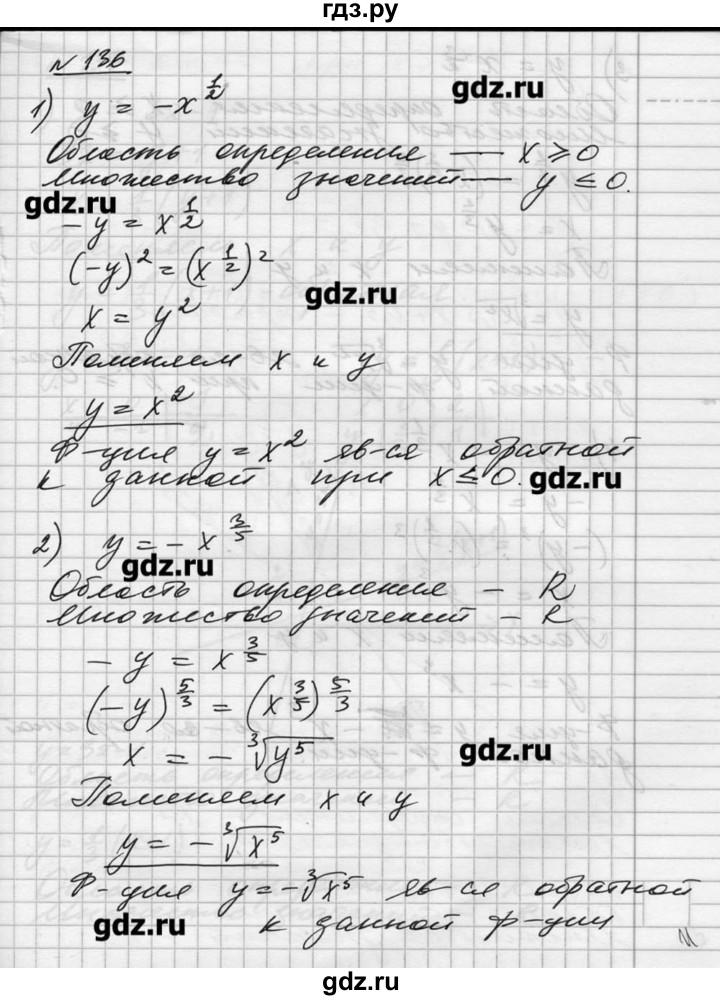 гдз.ру
№ 136
gdz.ru
1) y = -x^{1/2}
Область определения — x ≥ 0
Множество значений — y ≤ 0.
gdz.ru
-y = x^{1/2}
(-y)^2 = (x^{1/2})^2
gdz.ru
x = y^2
Поменяем x и y
y = x^2
Ф-ция y = x^2 яв-ся обратной
к данной при x ≤ 0.
gdz.ru
2) y = -x^{3/5}
gdz.ru
Область определения - R
Множество значений - R
-y = x^{3/5}
(-y)^{5/3} = (x^{3/5})^{5/3}
x = -∛(y^5)
gdz.ru
Поменяем x и y
y = -∛(x^5)
Ф-ция y = -∛x^5 яв-ся обратной
к данной ф-ции
gdz.ru
gdz.ru